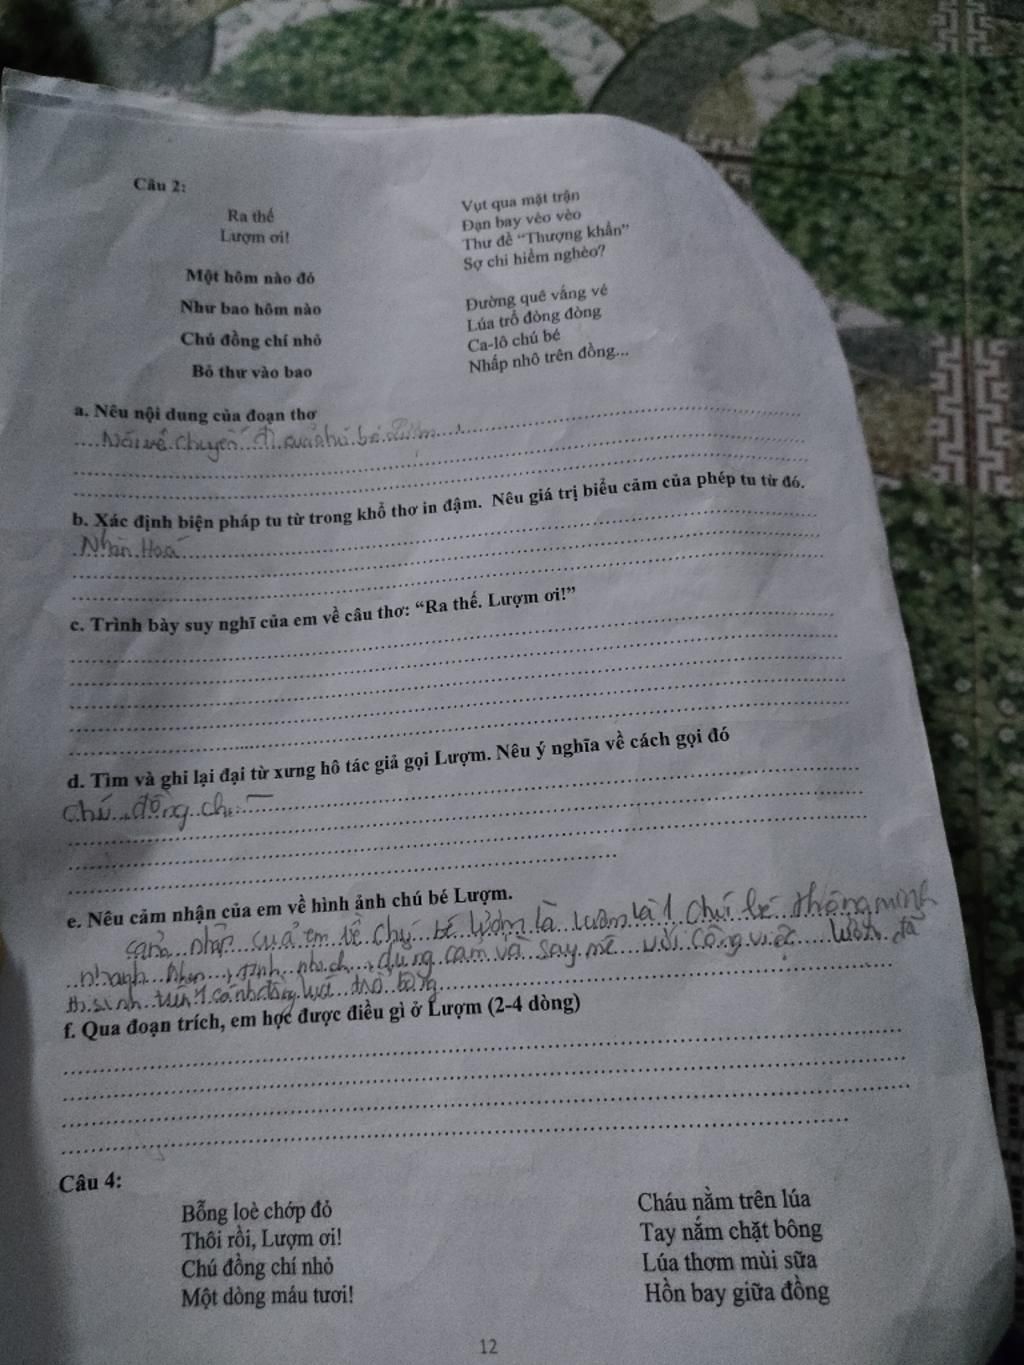 Câu 2:
Ra thế
Lượm ơi!
Một hôm nào đó
Như bao hôm nào
Chú đồng chí nhỏ
Bỏ thư vào bao
Vụt qua mặt trận
Đạn bay vèo vèo
Thư đề "Thượng khẩn"
Sợ chi hiểm nghèo?
Đường quê vắng vẻ
Lúa trổ đòng đòng
Ca-lô chú bé
Nhấp nhô trên đồng...
a. Nêu nội dung của đoạn thơ
Nói về chuyến đi của chú bé Lượm
b. Xác định biện pháp tu từ trong khổ thơ in đậm. Nêu giá trị biểu cảm của phép tu từ đó.
Nhân Hoá
c. Trình bày suy nghĩ của em về câu thơ: "Ra thế. Lượm ơi!"
d. Tìm và ghi lại đại từ xưng hô tác giả gọi Lượm. Nêu ý nghĩa về cách gọi đó
Chú đồng chí
e. Nêu cảm nhận của em về hình ảnh chú bé Lượm.
cảm nhận của em về chú bé lượm là lượm là 1 chú bé thông minh
nhanh nhẹn, dũng cảm và say mê với công việc lượm đã
hi sinh trên 1 cánh đồng lúa trổ bông
f. Qua đoạn trích, em học được điều gì ở Lượm (2-4 dòng)
Câu 4:
Bỗng loè chớp đỏ
Thôi rồi, Lượm ơi!
Chú đồng chí nhỏ
Một dòng máu tươi!
Cháu nằm trên lúa
Tay nắm chặt bông
Lúa thơm mùi sữa
Hồn bay giữa đồng
12